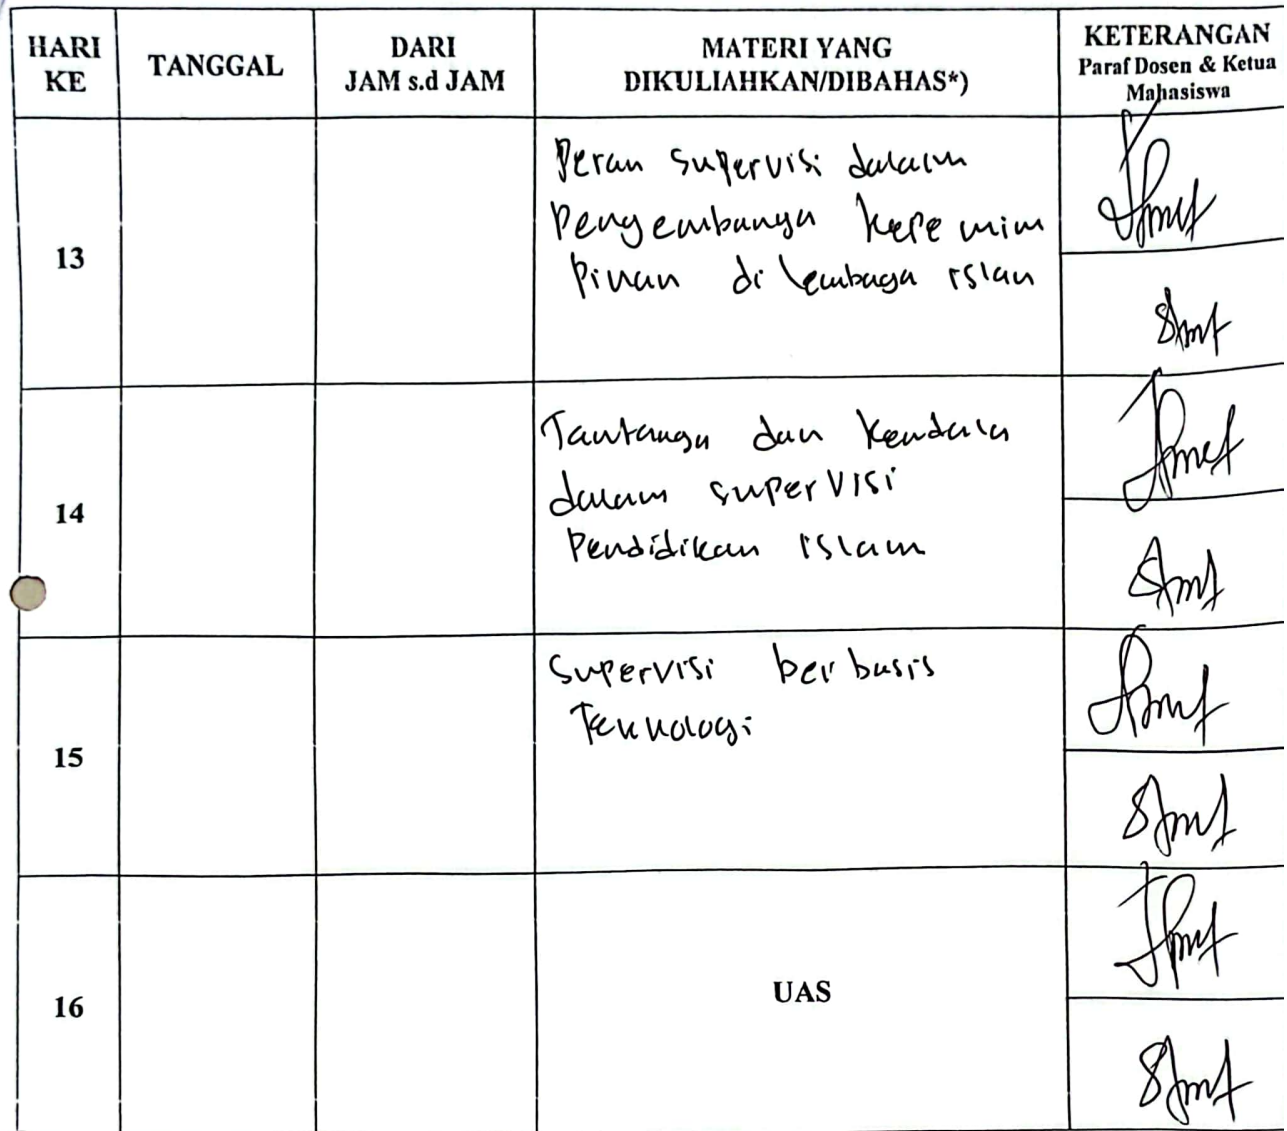 HARI KE
TANGGAL
DARI
JAM s.d JAM
MATERI YANG
DIKULIAHKAN/DIBAHAS*)
KETERANGAN
Paraf Dosen & Ketua
Mahasiswa
13
Peran supervisi dalam
Pengembanga kepe mim
pinan di lembaga islan
14
Tantanga dan kendala
dalam supervisi
Pendidikan islam
15
Supervisi berbasis
Teknologi
16
UAS